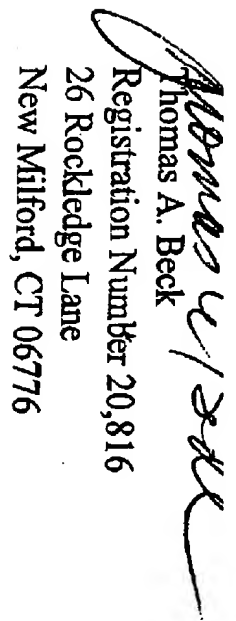 Thomas A. Beck
Thomas A. Beck
Registration Number 20,816
26 Rockledge Lane
New Milford, CT 06776